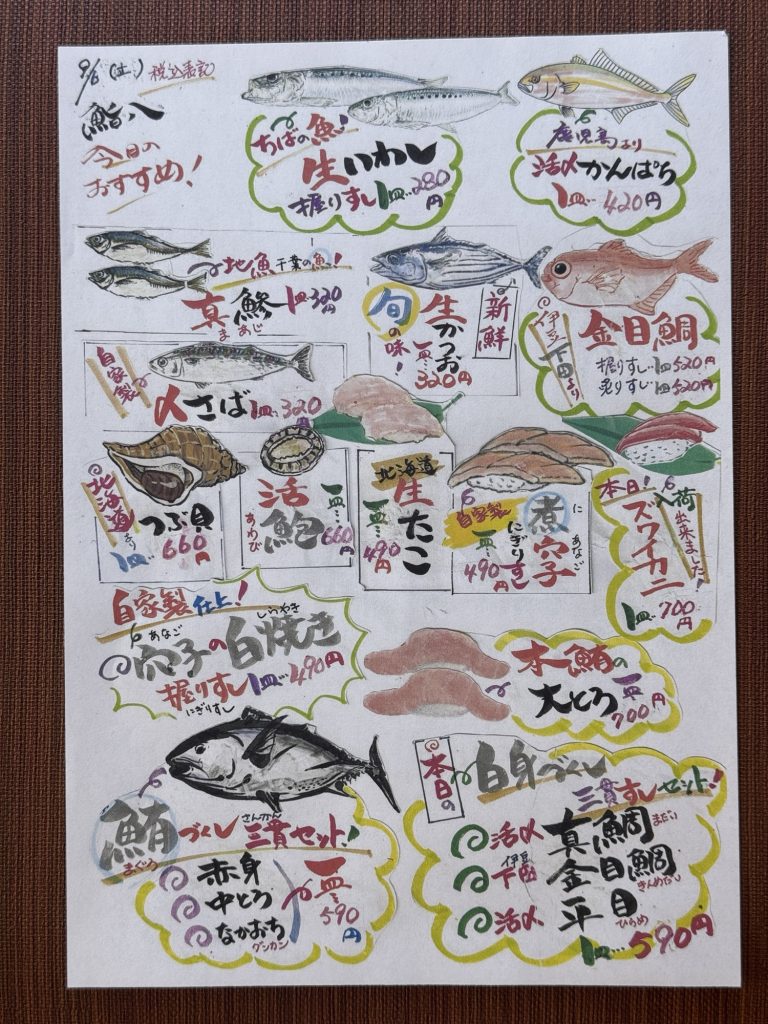 9/6(土) 税込表記
鮨八
今日の
おすすめ!
ちばの魚!
生いわし
握りすし1皿…280円
鹿児島より
活〆かんぱち
1皿…420円
地魚 千葉の魚!
真鯵 1皿320円
まあじ
旬の味!
生かつお
一皿…320円
新鮮
伊豆下田より
金目鯛
握りすし…1皿520円
炙りすし…1皿520円
自家製
〆さば 1皿…320円
北海道より
つぶ貝
1皿…660円
活鮑
あわび
一皿…660円
北海道
生たこ
一皿…490円
自家製
煮穴子
に あなご
にぎりすし
一皿…490円
本日!
入荷出来ました!
ズワイカニ
1皿…700円
自家製仕上!
あなご しらやき
穴子の白焼き
握りすし1皿…490円
にぎりすし
本鮪の
大とろ 一皿…700円
鮪づくし三貫セット!
まぐろ さんかん
赤身
中とろ
なかおち
グンカン
一皿…590円
本日の
白身づくし
三貫すしセット!
活〆 真鯛 まだい
伊豆下田 金目鯛 きんめだい
活〆 平目 ひらめ
1皿…590円